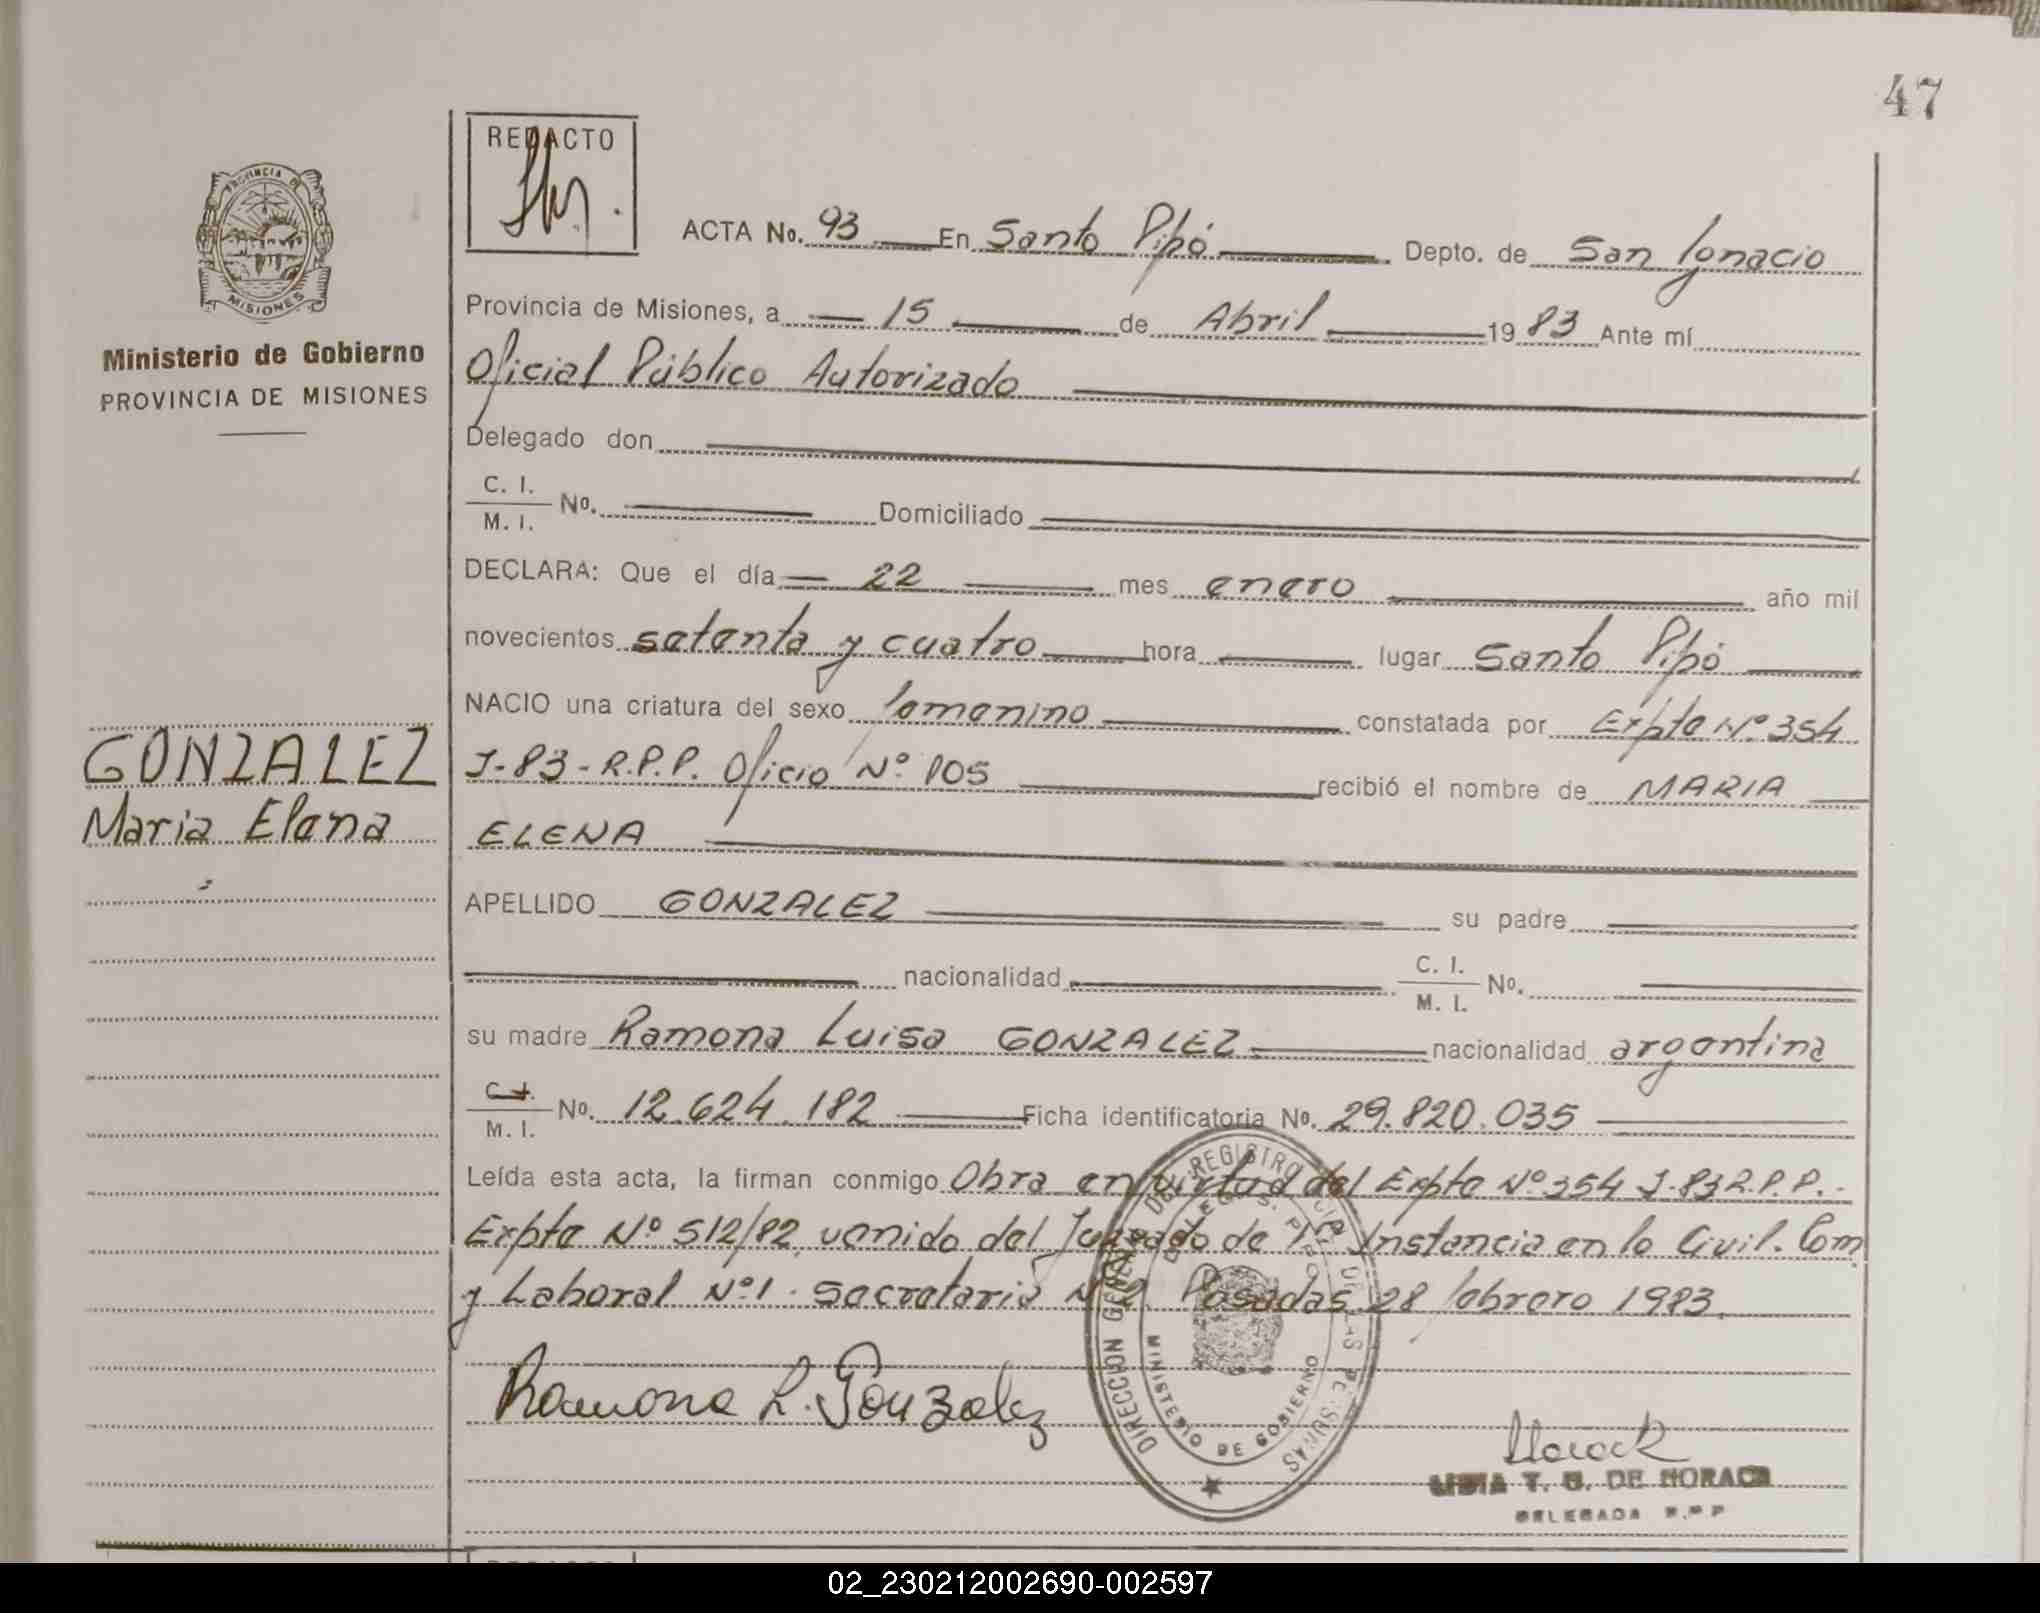 47
REDACTO
PROVINCIA DE
MISIONES
ACTA No. 93 En Santo Pipó Depto. de San Ignacio
Provincia de Misiones, a 15 de Abril 1983 Ante mí
Ministerio de Gobierno
PROVINCIA DE MISIONES
Oficial Público Autorizado
Delegado don
C. I.
M. I. No. Domiciliado
DECLARA: Que el día 22 mes enero año mil
novecientos setenta y cuatro hora lugar Santo Pipó
NACIO una criatura del sexo femenino constatada por Expte Nº 354
GONZALEZ
J-83-R.P.P. Oficio Nº 105 recibió el nombre de MARIA
Maria Elena
ELENA
APELLIDO GONZALEZ su padre
nacionalidad C. I.
M. I. No.
su madre Ramona Luisa GONZALEZ nacionalidad argentina
C. I.
M. I. No. 12.624.182 Ficha identificatoria No. 29.820.035
Leída esta acta, la firman conmigo Obra en virtud del Expte Nº 354 J-83 R.P.P.-
Expte Nº 512/82 venido del Juzgado de 1ª Instancia en lo Civil. Com
y Laboral Nº 1. Secretaria Nº 2 Posadas 28 febrero 1983.
DIRECCION GENERAL DEL REGISTRO PROVINCIAL DE LAS PERSONAS
MINISTERIO DE GOBIERNO
Ramona L. Gonzalez
DE HORACK
DELEGADA R.P.P
02_230212002690-002597